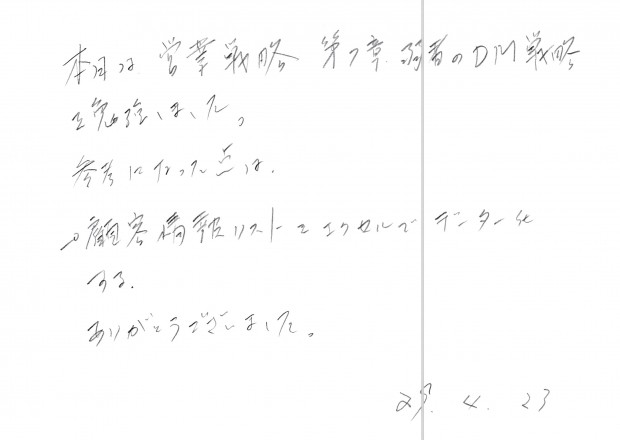 本日は、営業戦略 第7章、弱者のDM戦略
を勉強いました。
参考になった点は、
顧客情報リストをエクセルでデーター化
する。
ありがとうございました。
23. 4. 23